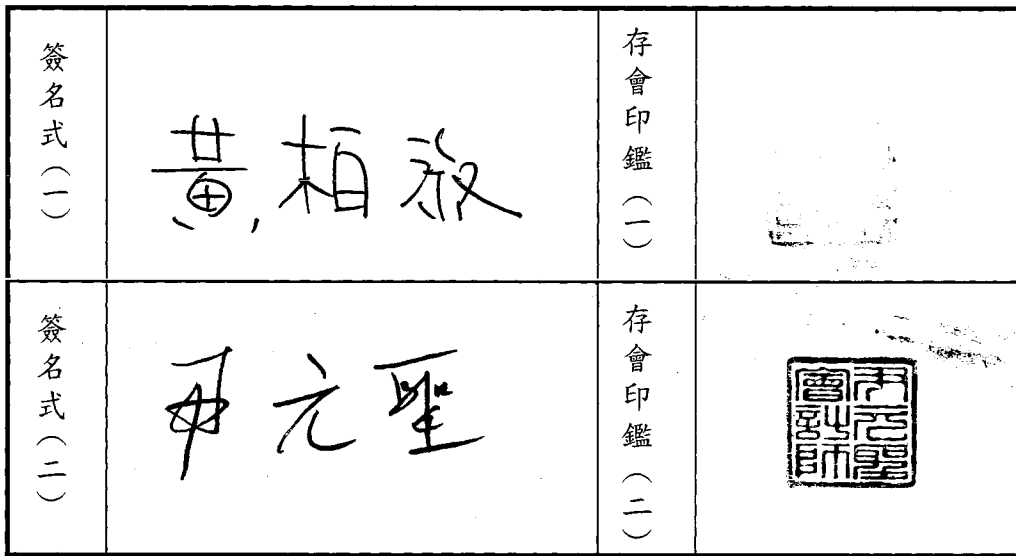 簽名式(一)
黃柏淑
存會印鑑(一)
簽名式(二)
尹元聖
存會印鑑(二)
尹元聖
會計師